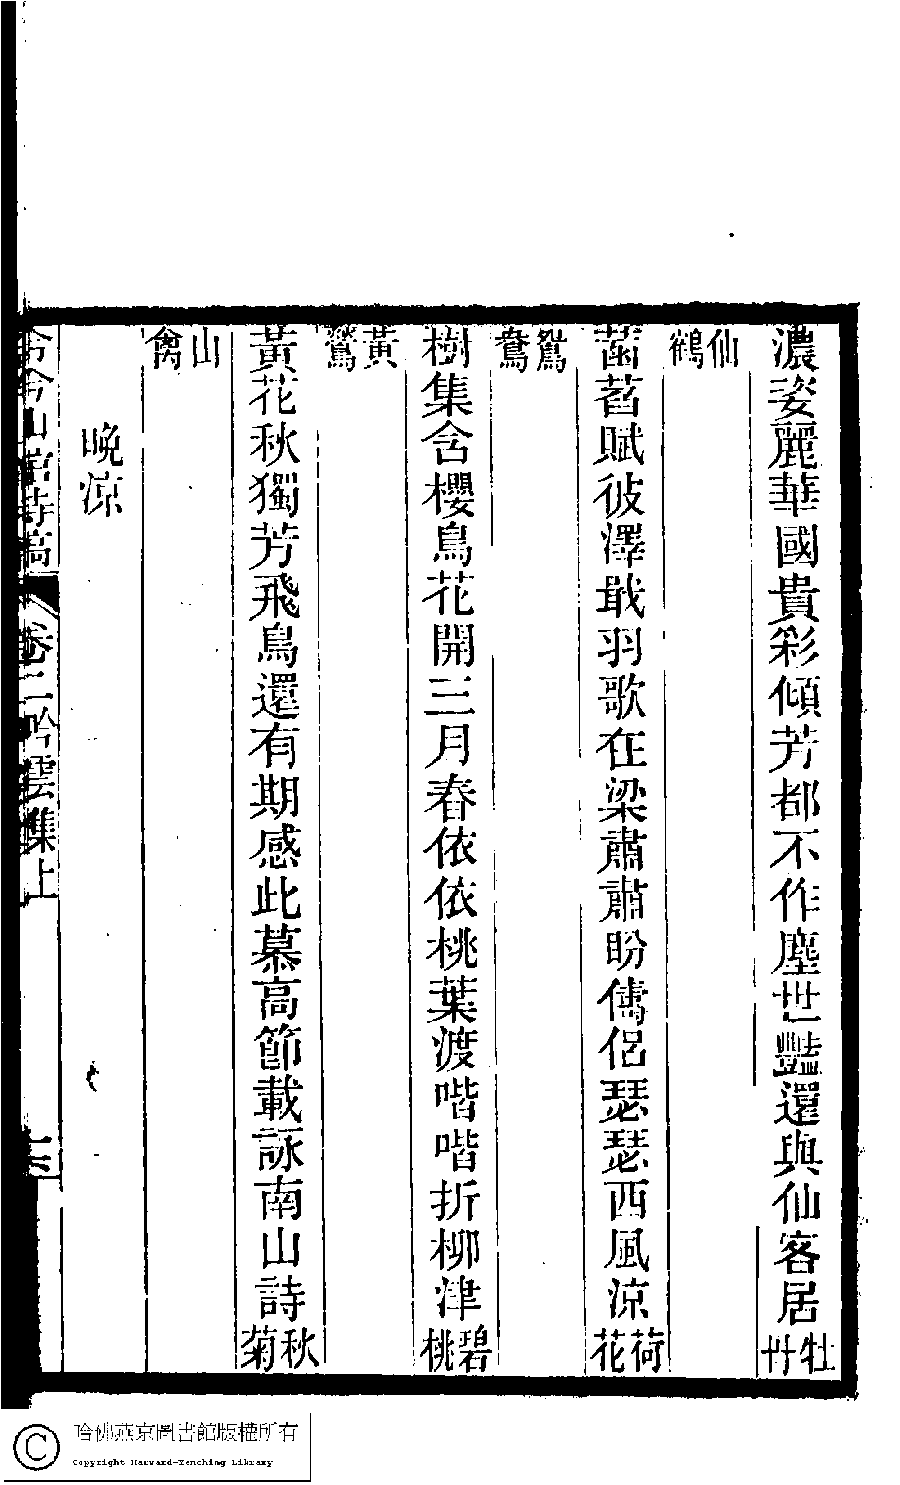 濃姿麗華國貴彩傾芳都不作塵世豔還與仙客居牡丹
仙鶴
菡萏賦彼澤戢羽歌在梁肅肅盼儔侶瑟瑟西風涼荷花
鴛鴦
樹集含櫻鳥花開三月春依依桃葉渡喈喈折柳津碧桃
黃鶯
黃花秋獨芳飛鳥還有期感此慕高節載詠南山詩秋菊
山禽
晚涼
今今山館詩稿
卷二吟雲集上
哈佛燕京圖書館版權所有
Copyright Harvard-Yenching Library